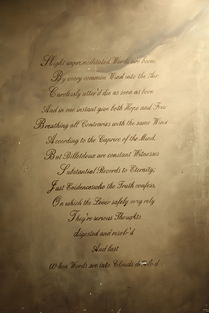 Slight unpremeditated Words are born
By every common Wind into the Air
Carelessly utter'd die as soon as born
And in one instant give both Hope and Fear
Breathing all Contraries with the same Wind
According to the Caprice of the Mind.
But Billetdoux are constant Witnesses
Substantial Records to Eternity;
Just Evidences who the Truth confess,
On which the Lover safely may rely
They're serious Thoughts
digested and resolv'd
And last
When Words are into Clouds devolv'd